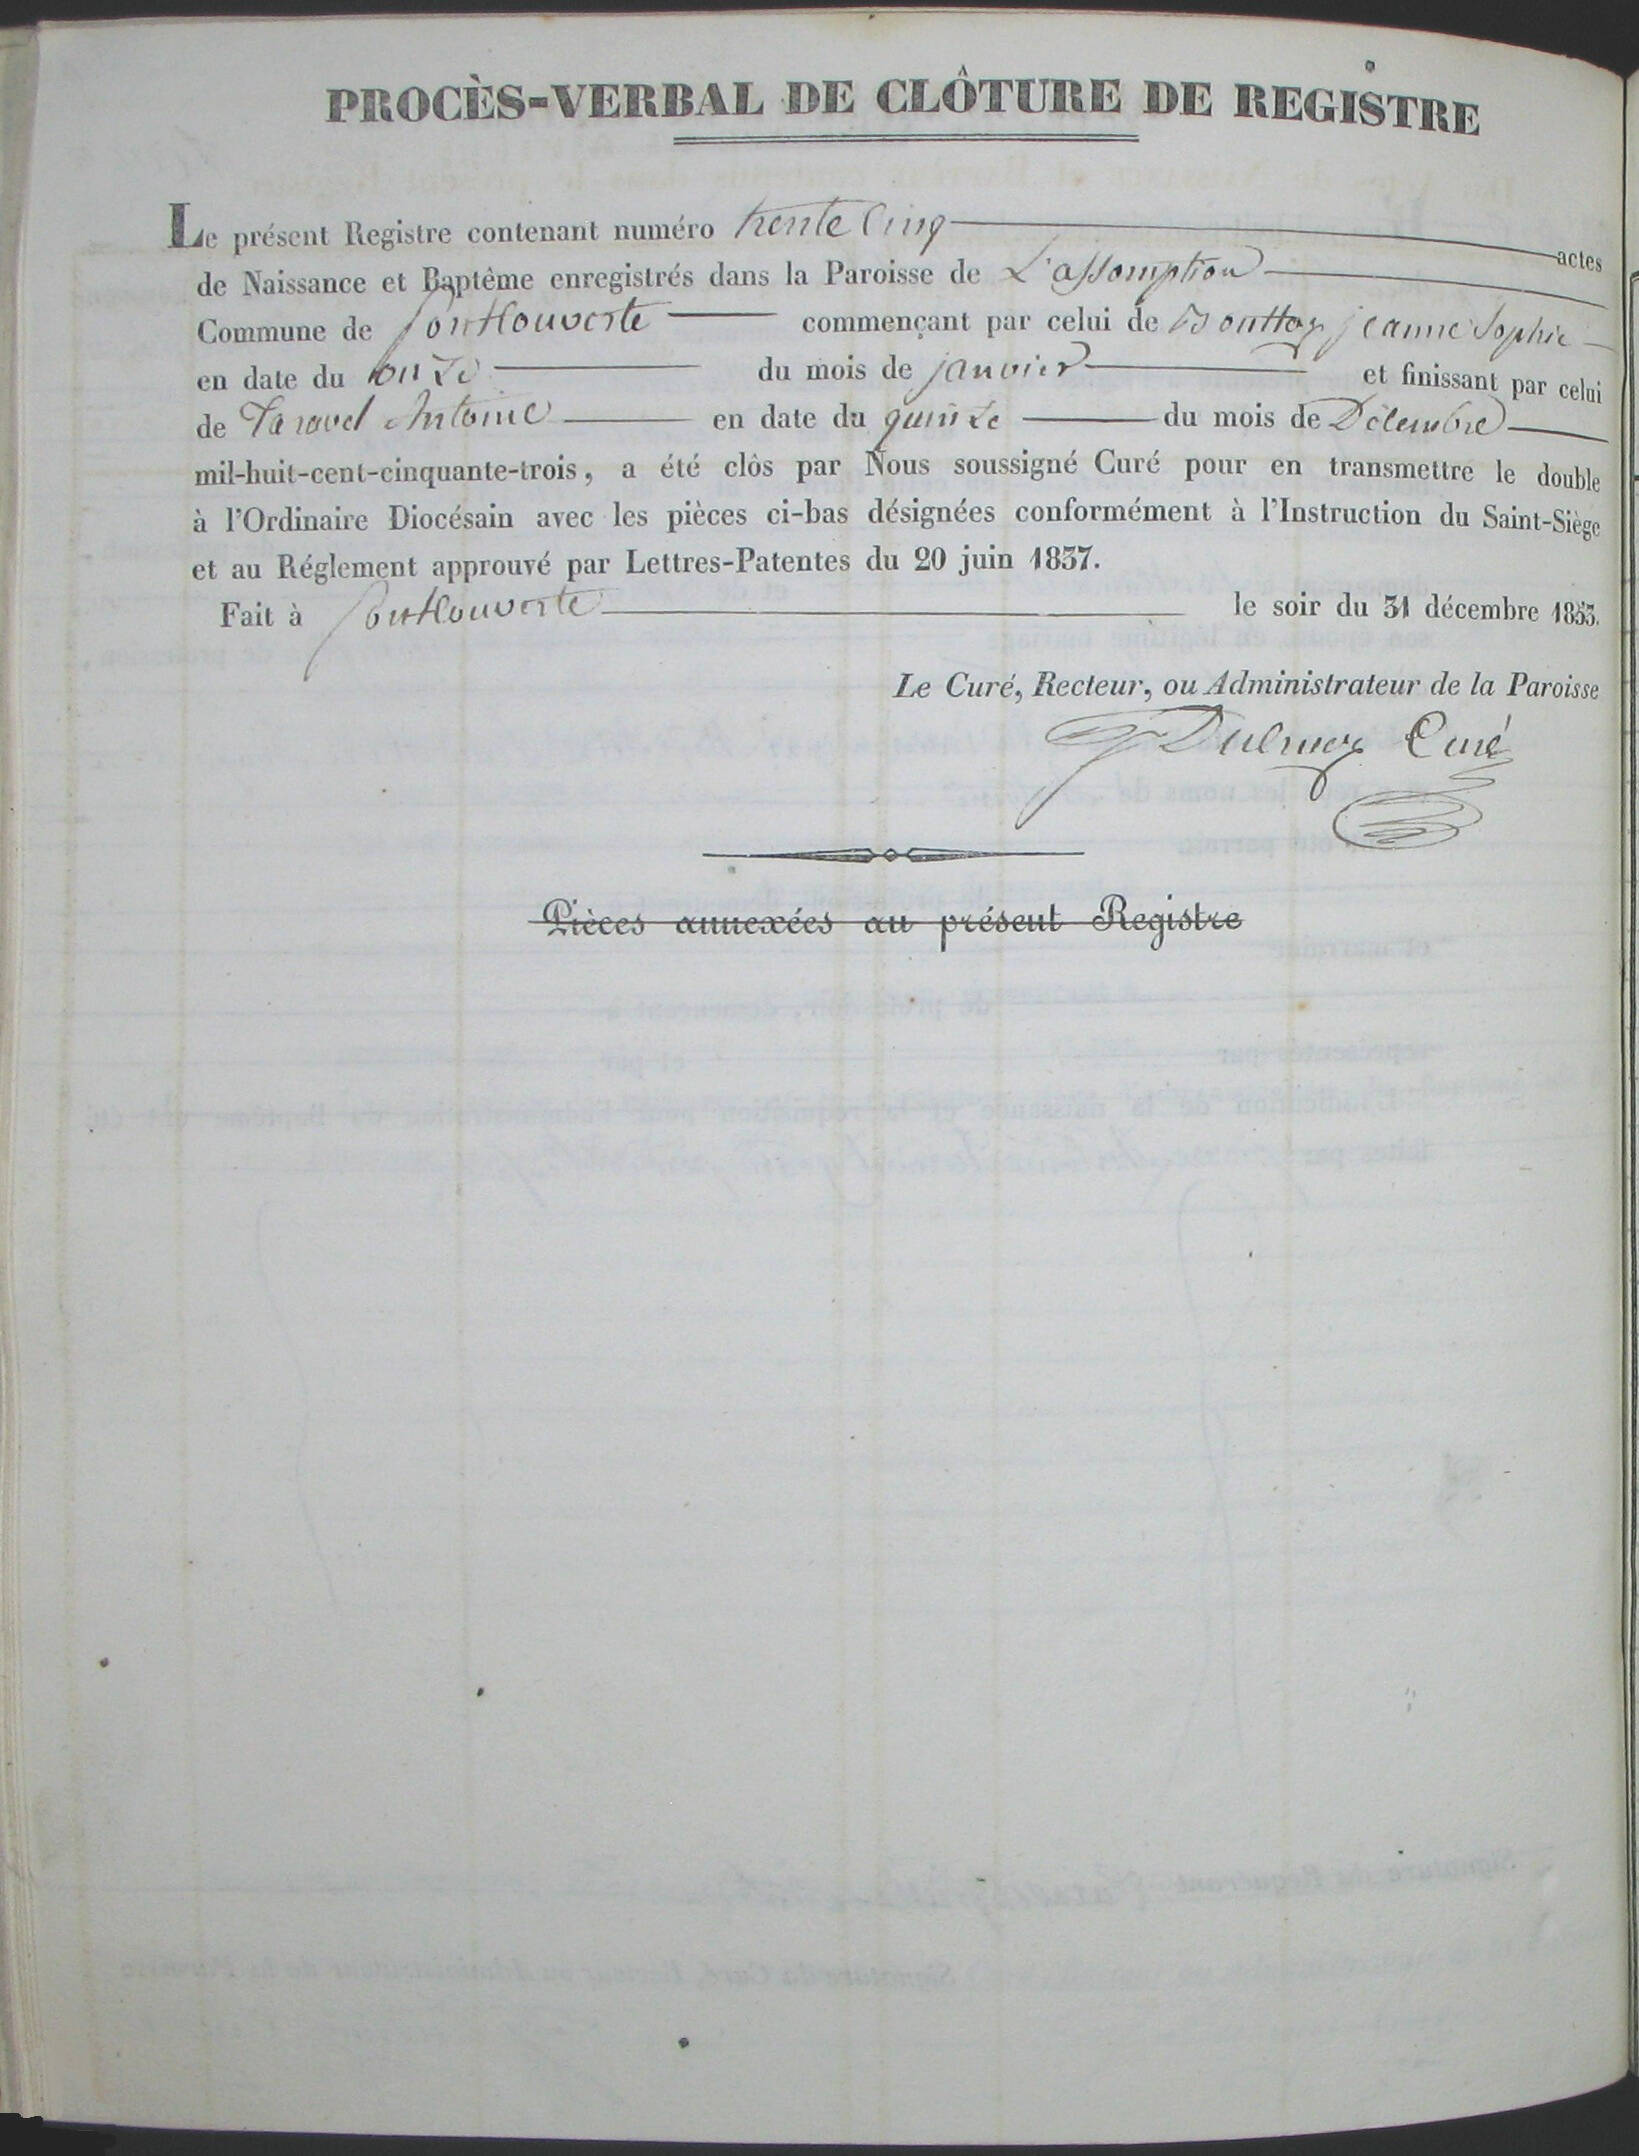 PROCÈS-VERBAL DE CLÔTURE DE REGISTRE
Le présent Registre contenant numéro trente Cinq actes
de Naissance et Baptême enregistrés dans la Paroisse de L'assomption
Commune de commençant par celui de jeanne Sophie
en date du onze du mois de janvier et finissant par celui
de Antoine en date du quinze du mois de Décembre
mil-huit-cent-cinquante-trois, a été clòs par Nous soussigné Curé pour en transmettre le double
à l'Ordinaire Diocésain avec les pièces ci-bas désignées conformément à l'Instruction du Saint-Siège
et au Réglement approuvé par Lettres-Patentes du 20 juin 1837.
Fait à le soir du 31 décembre 1853.
Le Curé, Recteur, ou Administrateur de la Paroisse
Curé
Pièces annexées au présent Registre